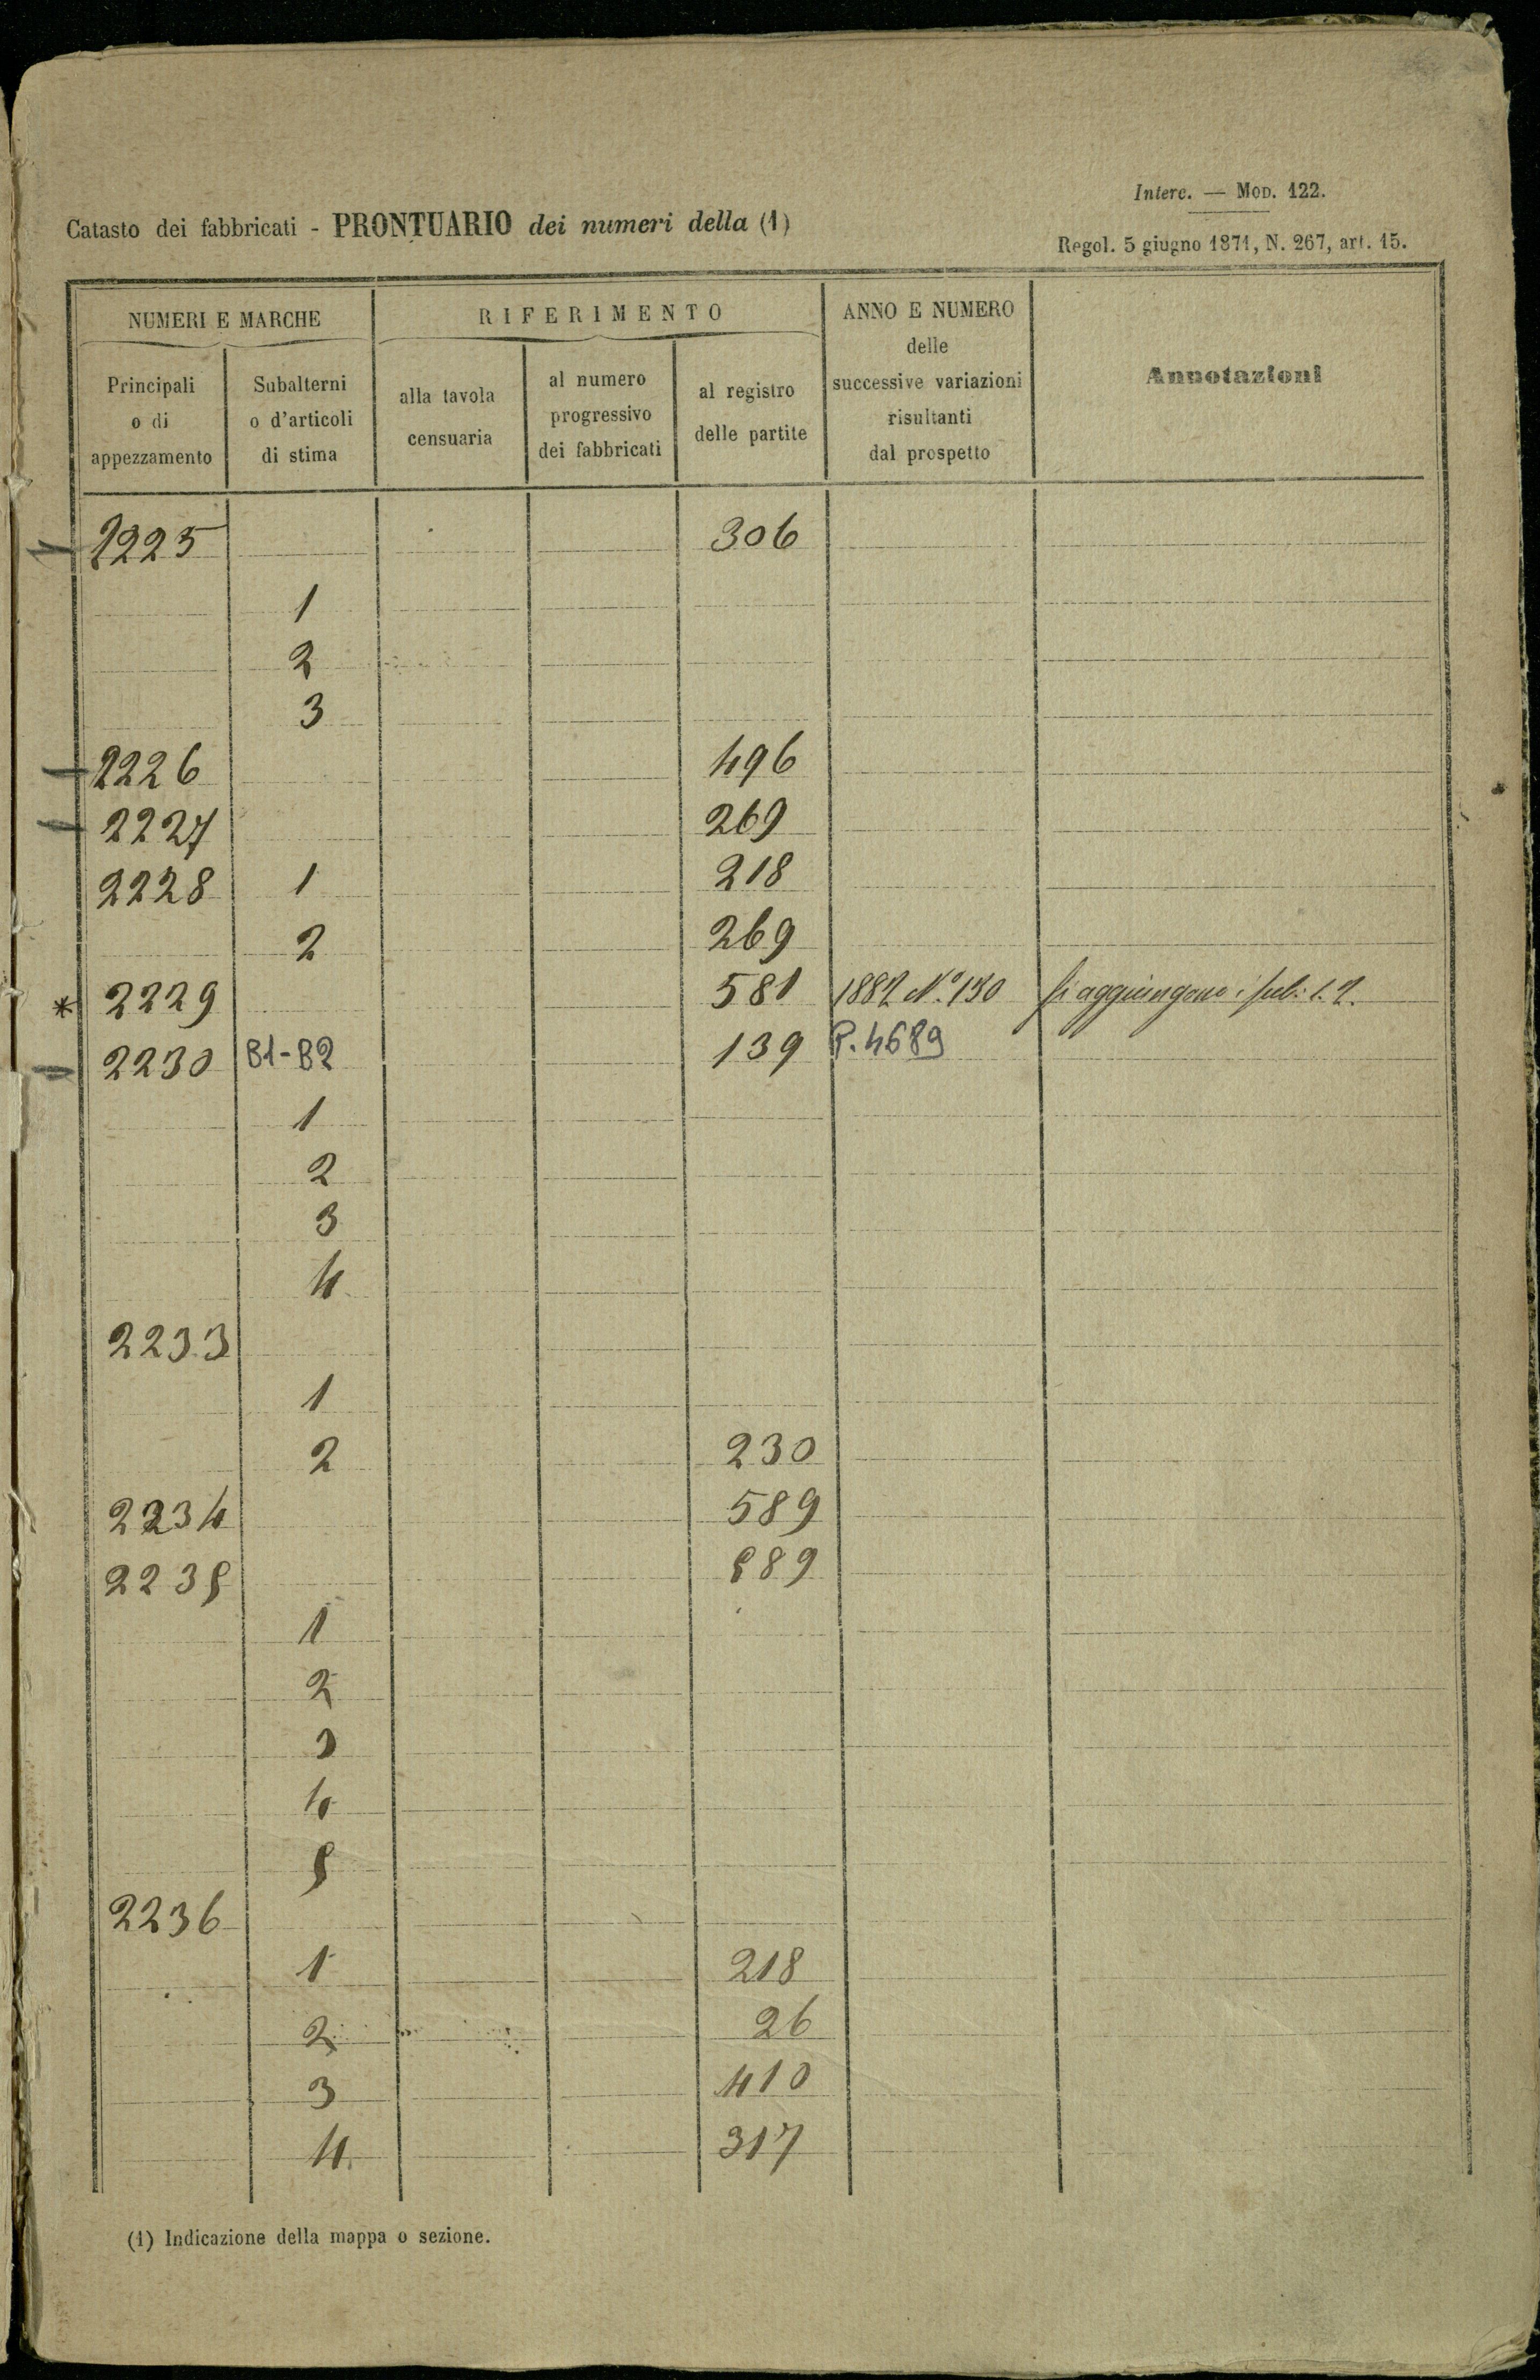 Interc. — Mod. 122.
Catasto dei fabbricati - PRONTUARIO dei numeri della (1)
Regol. 5 giugno 1871, N. 267, art. 15.
NUMERI E MARCHE RIFERIMENTO ANNO E NUMERO delle successive variazioni risultanti dal prospetto Annotazioni
Principali o di appezzamento Subalterni o d'articoli di stima alla tavola censuaria al numero progressivo dei fabbricati al registro delle partite
2225 306
1
2
3
2226 496
2227 269
2228 1 218
2 269
* 2229 581 1882 N.º 130 Si aggiungono i sub: 1. 2.
2230 B1-B2 139 P. 4689
1
2
3
4
2233
1
2 230
2234 589
2235 589
1
2
3
4
5
2236
1 218
2 26
3 410
4 317
(1) Indicazione della mappa o sezione.